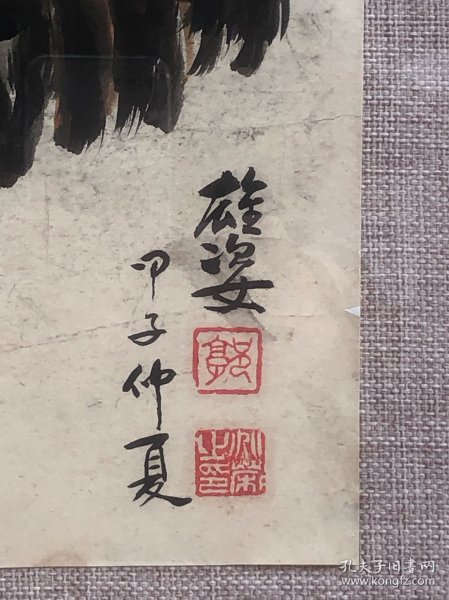 雄姿
甲子仲夏
郭
孔夫子旧书网
www.kongfz.com